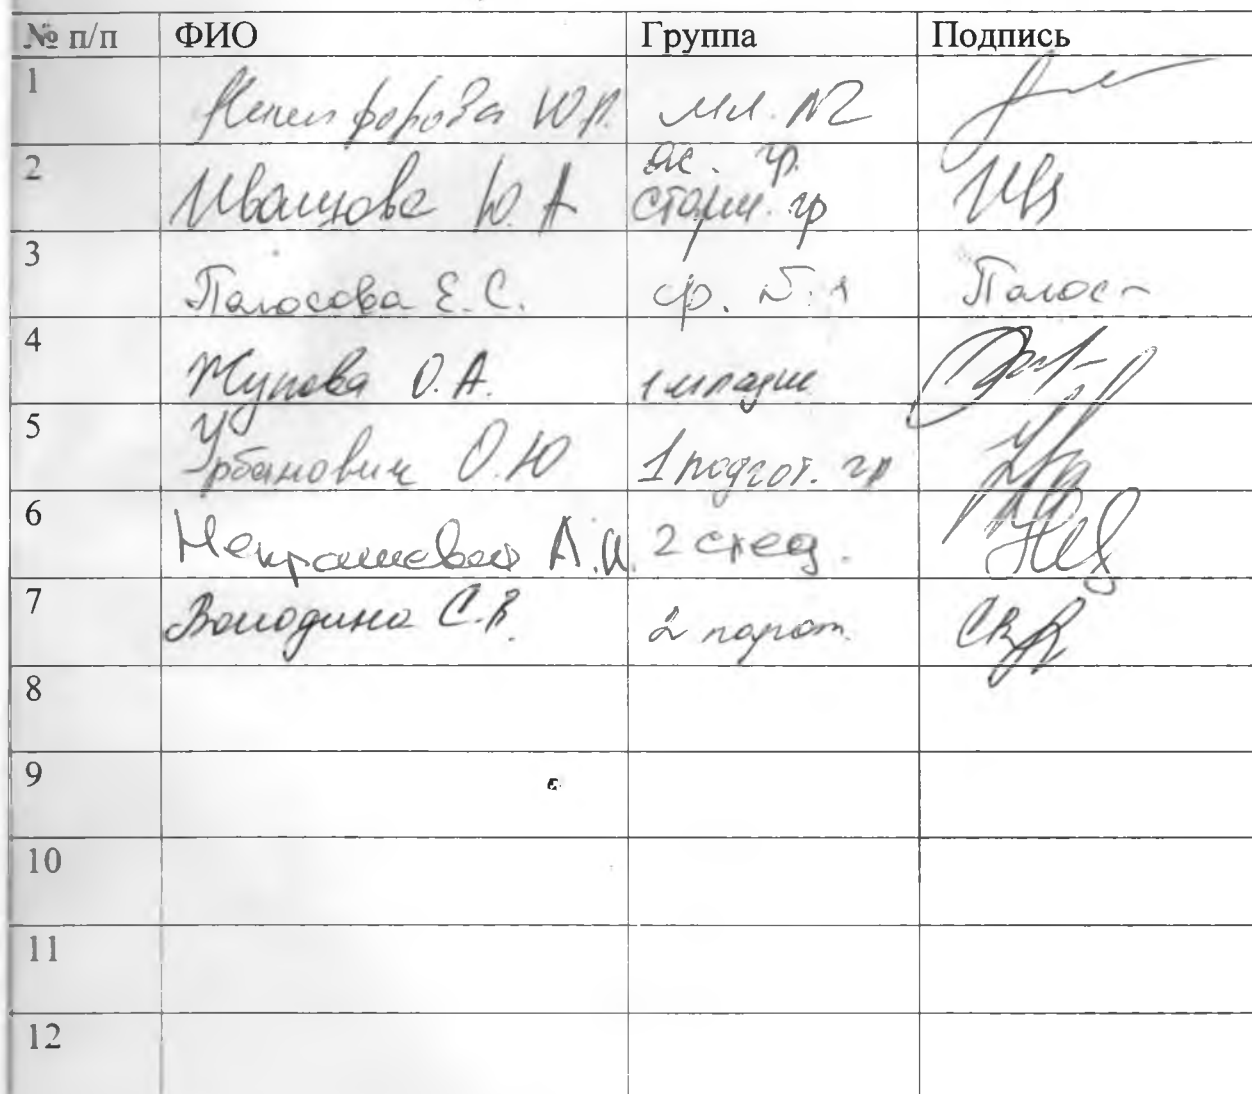 № п/п ФИО Группа Подпись
1 Ю.П. мл. №2
2 Иванцова Ю.А яс. гр. старш. гр Ив
3 Палосова Е.С. ср. Палос
4 Жупова О.А. 1 младше
5 Урбанович О.Ю 1 подгот. гр
6 Некрашевая А.И. 2 сред.
7 Володина С.В.
8
9
10
11
12